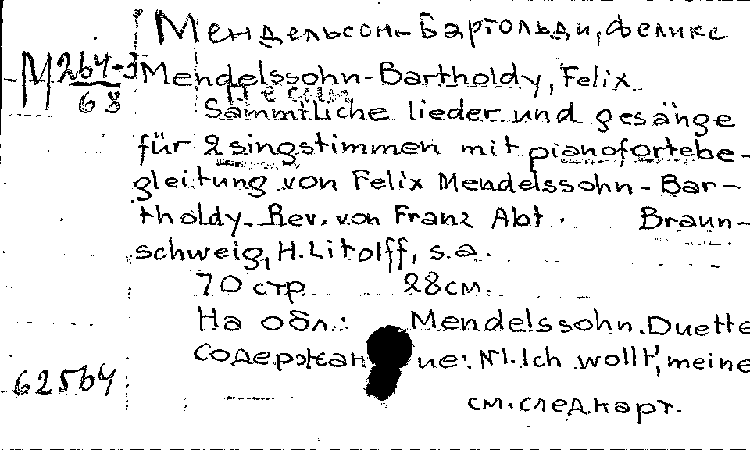 Мендельсон-Бартольди, Феликс
М 264-3
68
Mendelssohn-Bartholdy, Felix
Sämmtliche lieder und gesänge
für 2 singstimmen mit pianofortebe-
gleitung von Felix Mendelssohn-Bar-
tholdy. Rev. von Franz Abt. Braun-
schweig, H. Litolff, s.a.
70 стр 28см.
На обл.: Mendelssohn. Duette
Содержание: N1. Ich wollt', meine
62564
см. след карт.